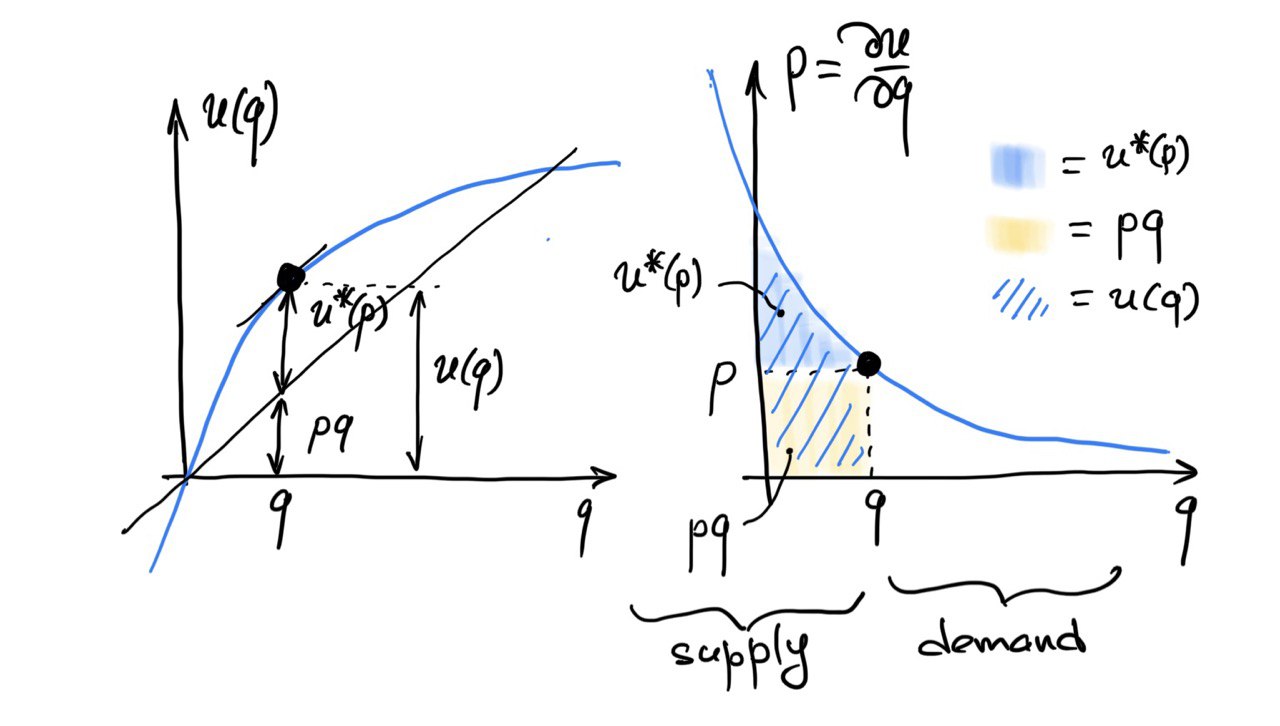 u(q)
u*(p)
u(q)
pq
q
q
p = ∂u/∂q
= u*(p)
= pq
= u(q)
u*(p)
p
pq
q
q
supply
demand